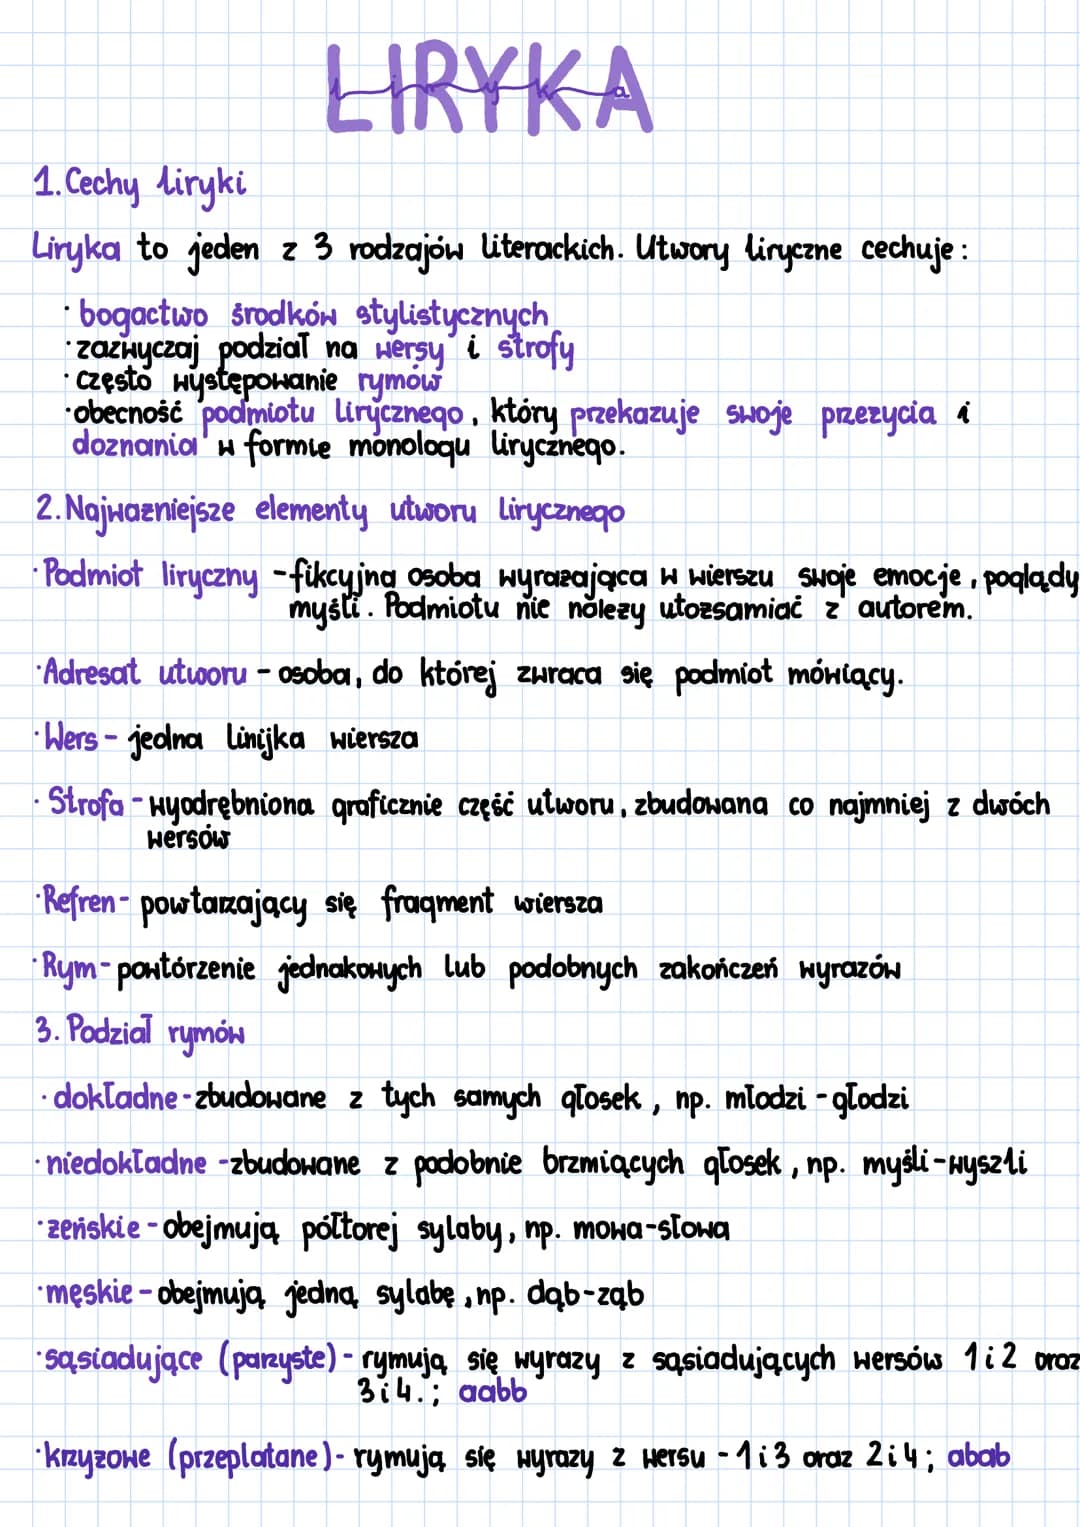 LIRYKA
Liryka
1. Cechy liryki
Liryka to jeden z 3 rodzajów literackich. Utwory liryczne cechuje:
· bogactwo środków stylistycznych
· zazwyczaj podział na wersy i strofy
· często występowanie rymów
· obecność podmiotu lirycznego, który przekazuje swoje przezycia i
doznania w formie monologu lirycznego.
2. Najwazniejsze elementy utworu lirycznego
· Podmiot liryczny - fikcyjna osoba wyrazająca w wierszu swoje emocje, poglądy
myśli. Podmiotu nie nalezy utozsamiać z autorem.
· Adresat utworu - osoba, do której zwraca się podmiot mówiący.
· Wers - jedna linijka wiersza
· Strofa - wyodrębniona graficznie część utworu, zbudowana co najmniej z dwóch
wersów
· Refren - powtarzający się fragment wiersza
· Rym - powtórzenie jednakowych lub podobnych zakończeń wyrazów
3. Podział rymów
· dokładne - zbudowane z tych samych głosek, np. młodzi - głodzi
· niedokładne - zbudowane z podobnie brzmiących głosek, np. myśli - wyszli
· zeńskie - obejmują półtorej sylaby, np. mowa - słowa
· męskie - obejmują jedną sylabę, np. dąb - ząb
· sąsiadujące (parzyste) - rymują się wyrazy z sąsiadujących wersów 1 i 2 oraz
3 i 4.; aabb
· krzyzowe (przeplatane) - rymują się wyrazy z wersu - 1 i 3 oraz 2 i 4; abab